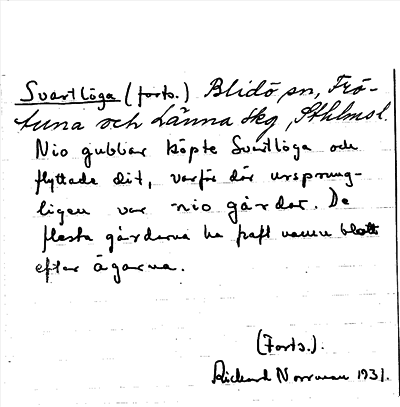 Svartlöga (forts.) Blidö sn, Frö-
tuna och Länna skg, Sthlms l.
Nio gubbar köpte Svartlöga och
flyttade dit, varför där ursprung-
ligen var nio gårdar. De
flesta gårdarna ha haft namn blott
efter ägarna.
(Forts.).
Rickard Norrman 1931.